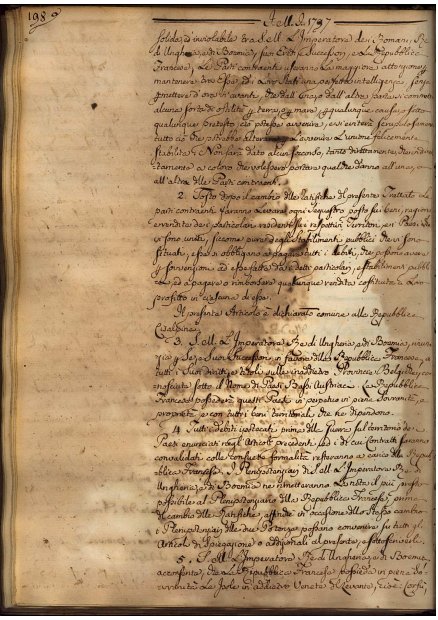 198
A. M. D. 1797
solida, ed inviolabile tra S. M. L'Imperatore dei Romani, Re
di Ungheria, e di Boemia, suoi Eredi, e Successori, e la Repubblica
Francese. Le Parti contraenti useranno la maggiore attenzione
mantenere tra Esse, ed i Loro Stati una perfetta intelligenza, senza
permettere d'ora in avanti, che dall'una, o dall'altra parte si commetta
alcuna sorte di ostilità per terra, o per mare, per qualunque causa, o sotto
qualunque pretesto
tutto ciò che potrebbe alterare in avvenire l'unione felicemente
stabilita. Non sarà dato alcun soccorso, tanto direttamente, che indiret-
tamente a coloro che volessero portare qualche danno all'una, o
all'altra delle Parti contraenti.
2. Tosto dopo il cambio delle Ratifiche del presente Trattato Le
parti contraenti faranno Levare ogni sequestro posto sui beni, ragioni
e rendite dei particolari residenti sui rispettivi Territori, e i Paesi che
vi sono uniti, siccome pure degli stabilimenti pubblici che vi sono
situati, esse si obbligano a pagare tutti i debiti, che possono avere
per sovvenzioni ad esse fatte da i detti particolari, e stabilimenti pubbli-
ci, ed a pagare o rimborsare qualunque rendita costituita a Loro
profitto in ciascuna di esse.
Il presente Articolo è dichiarato comune alla Repubblica
Cisalpina.
3. S. M. L'Imperatore Re di Ungheria e di Boemia, rinun-
cia per Se, e Suoi Successori, in favore della Repubblica Francese, a
tutti i Suoi diritti, e titoli sulle in addietro Provincie Belgiche, co-
nosciute sotto il Nome di Paesi Bassi Austriaci. La Repubblica
Francese possederà questi Paesi in perpetuo in piena Sovranità, e
proprietà, e con tutti i beni territoriali che ne dipendono.
4. Tutti i debiti ipotecati prima della Guerra sul territorio dei
Paesi enunciati negli Articoli precedenti, ed i di cui Contratti saranno
consolidati colle consuete formalità resteranno a carico della Repub-
blica Francese. I Plenipotenziarj di S. M. L'Imperatore Re di
Ungheria, e di Boemia ne rimetteranno La nota il più presto
possibile al Plenipotenziario della Repubblica Francese, prima
del cambio delle Ratifiche, affinchè in occasione dello stesso cambio
i Plenipotenziarj delle due Potenze possano convenire su tutti gli
Articoli di spiegazione o addizionali al presente, e sottoscriverli.
5. S. M. L'Imperatore Re di Ungheria, e di Boemia
acconsente, che La Repubblica Francese possieda in piena So-
vranità Le Isole in addietro Venete del Levante, cioè Corfù,